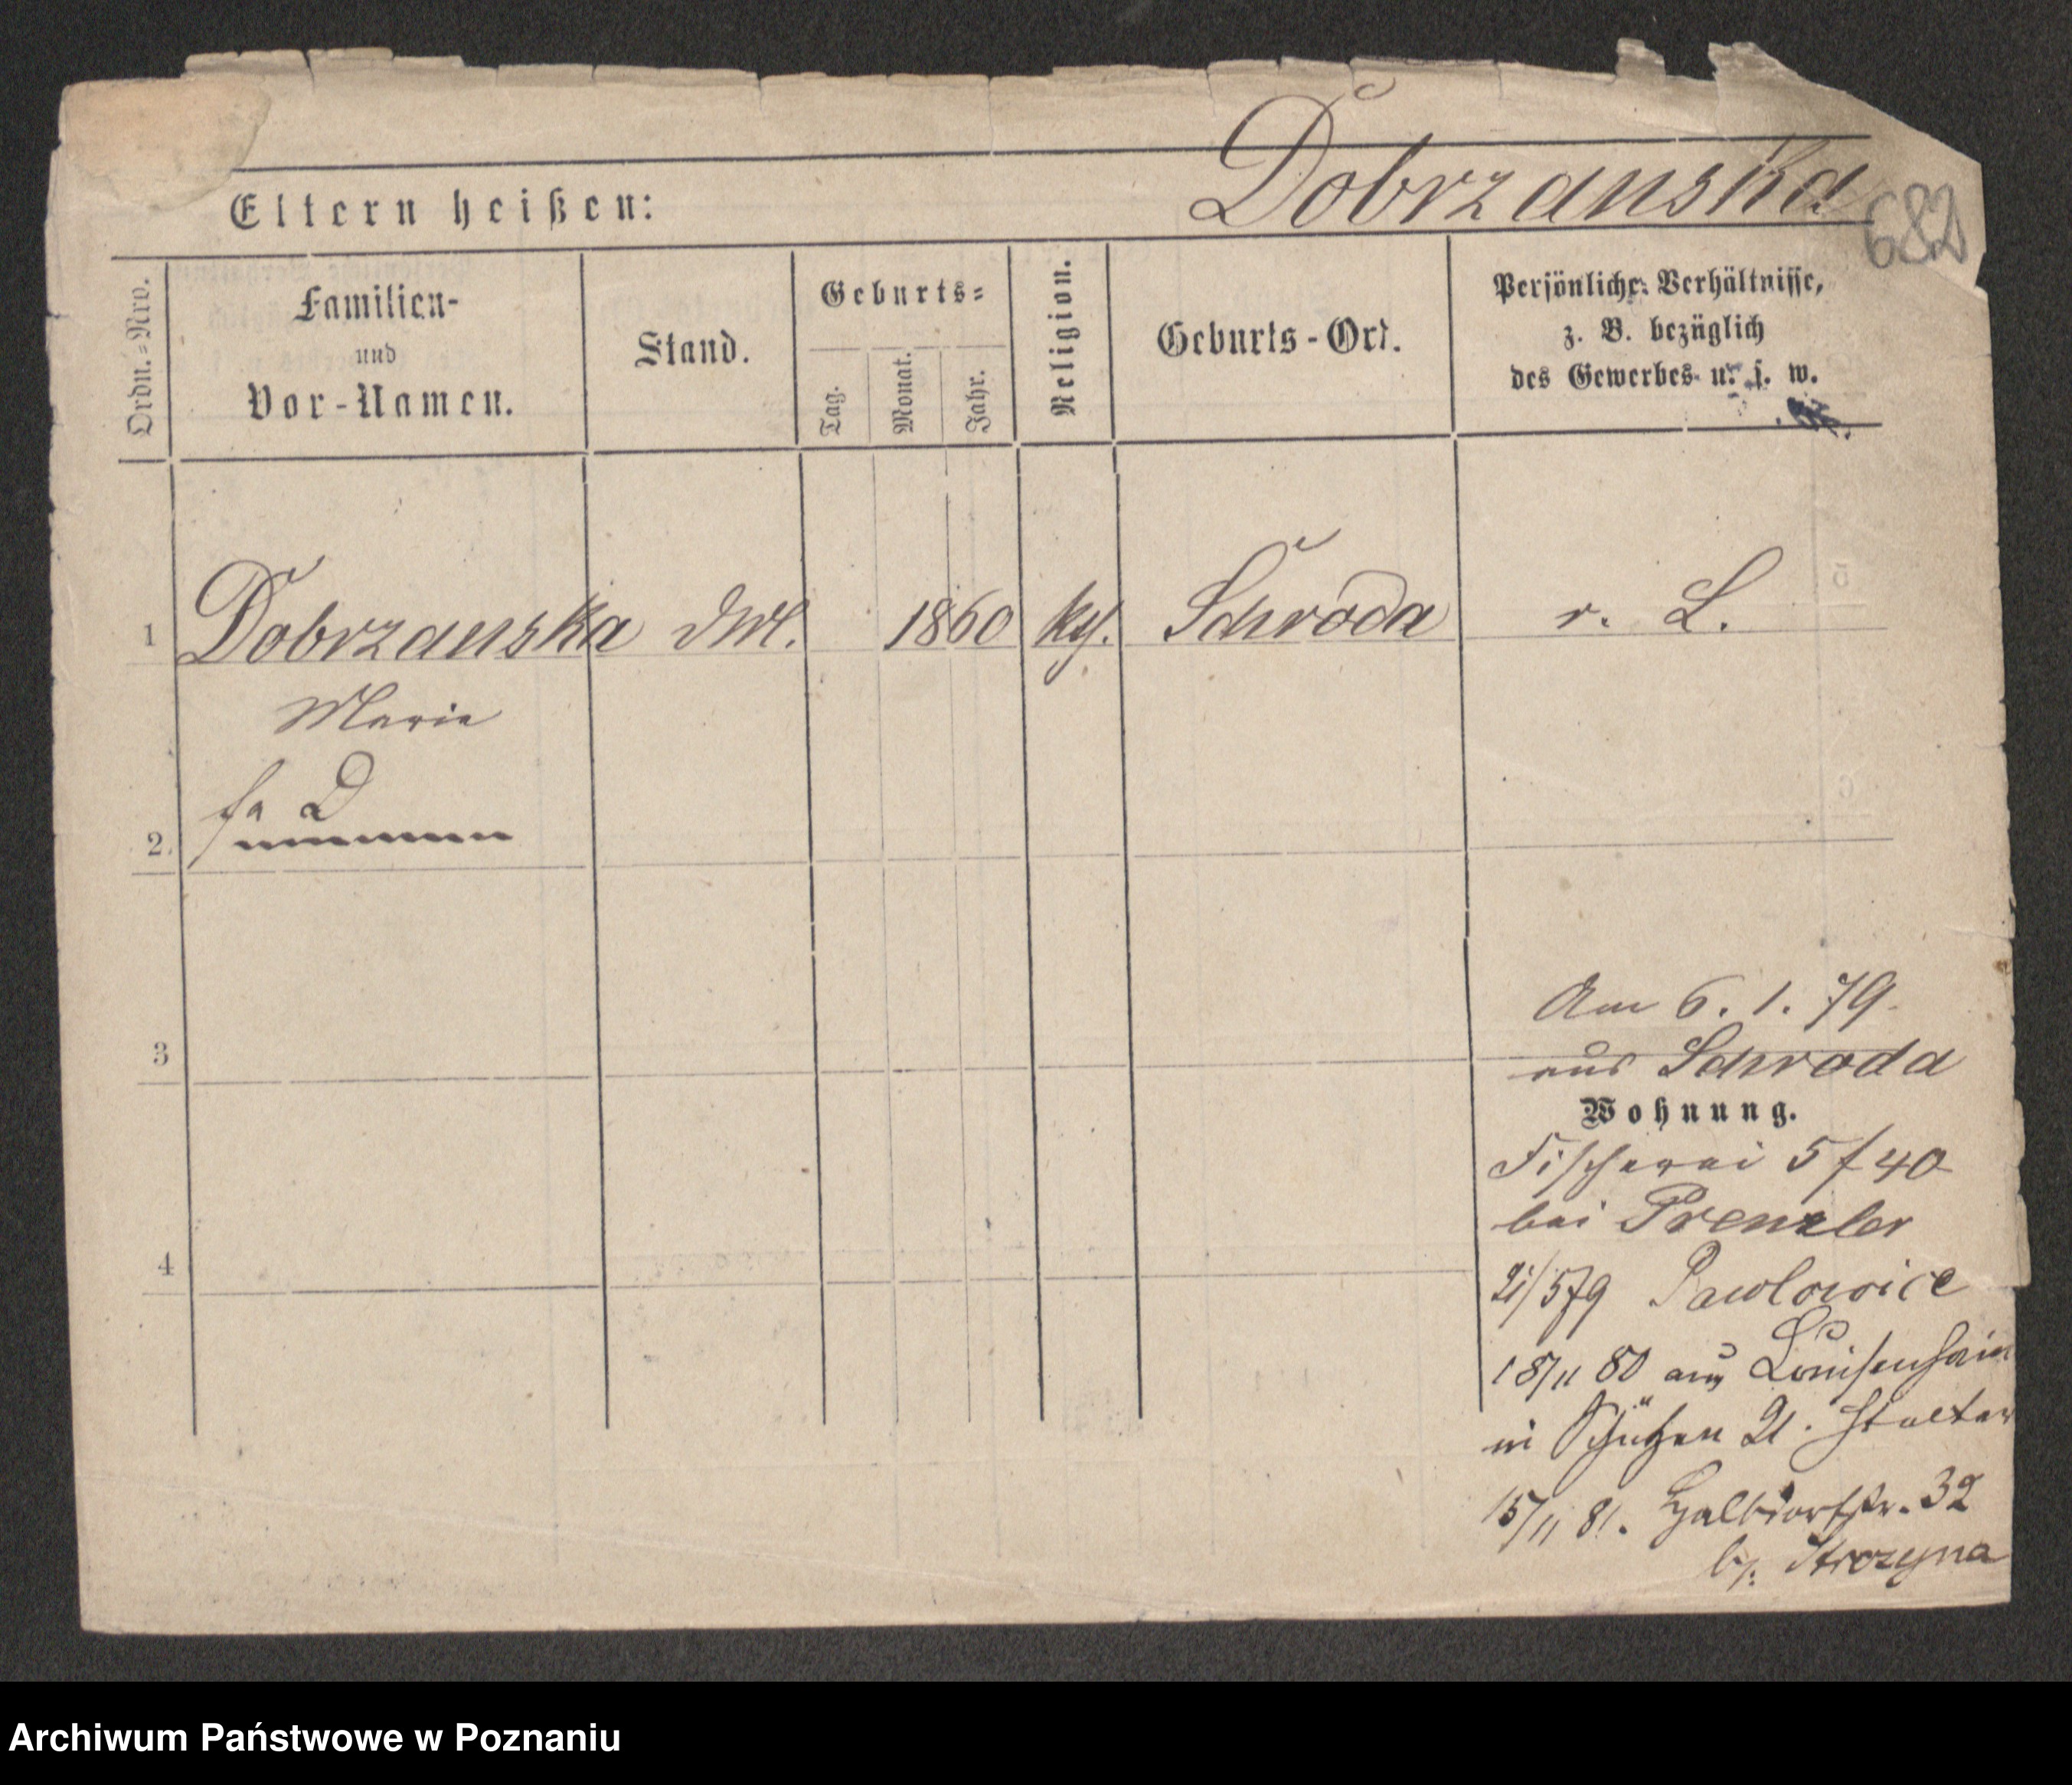 Dobrzanska
682
Eltern heißen:
Ordn.-Nro.
Familien-
und
Vor-Namen.
Stand.
Geburts-
Tag.
Monat.
Jahr.
Religion.
Geburts-Ort.
Persönliche Verhältnisse,
z. B. bezüglich
des Gewerbes u. s. w.
1 Dobrzanska 1860 Schroda r. L.
Marie
2.
3
4
Am 6. 1. 79.
aus Schroda
Wohnung.
Fischerei 5/40
bei Prenzler
21/5 79 Pawlowice
18/11 80 aus Louisenhain
in Schützen 21.
15/11 81. Halbdorfstr. 32